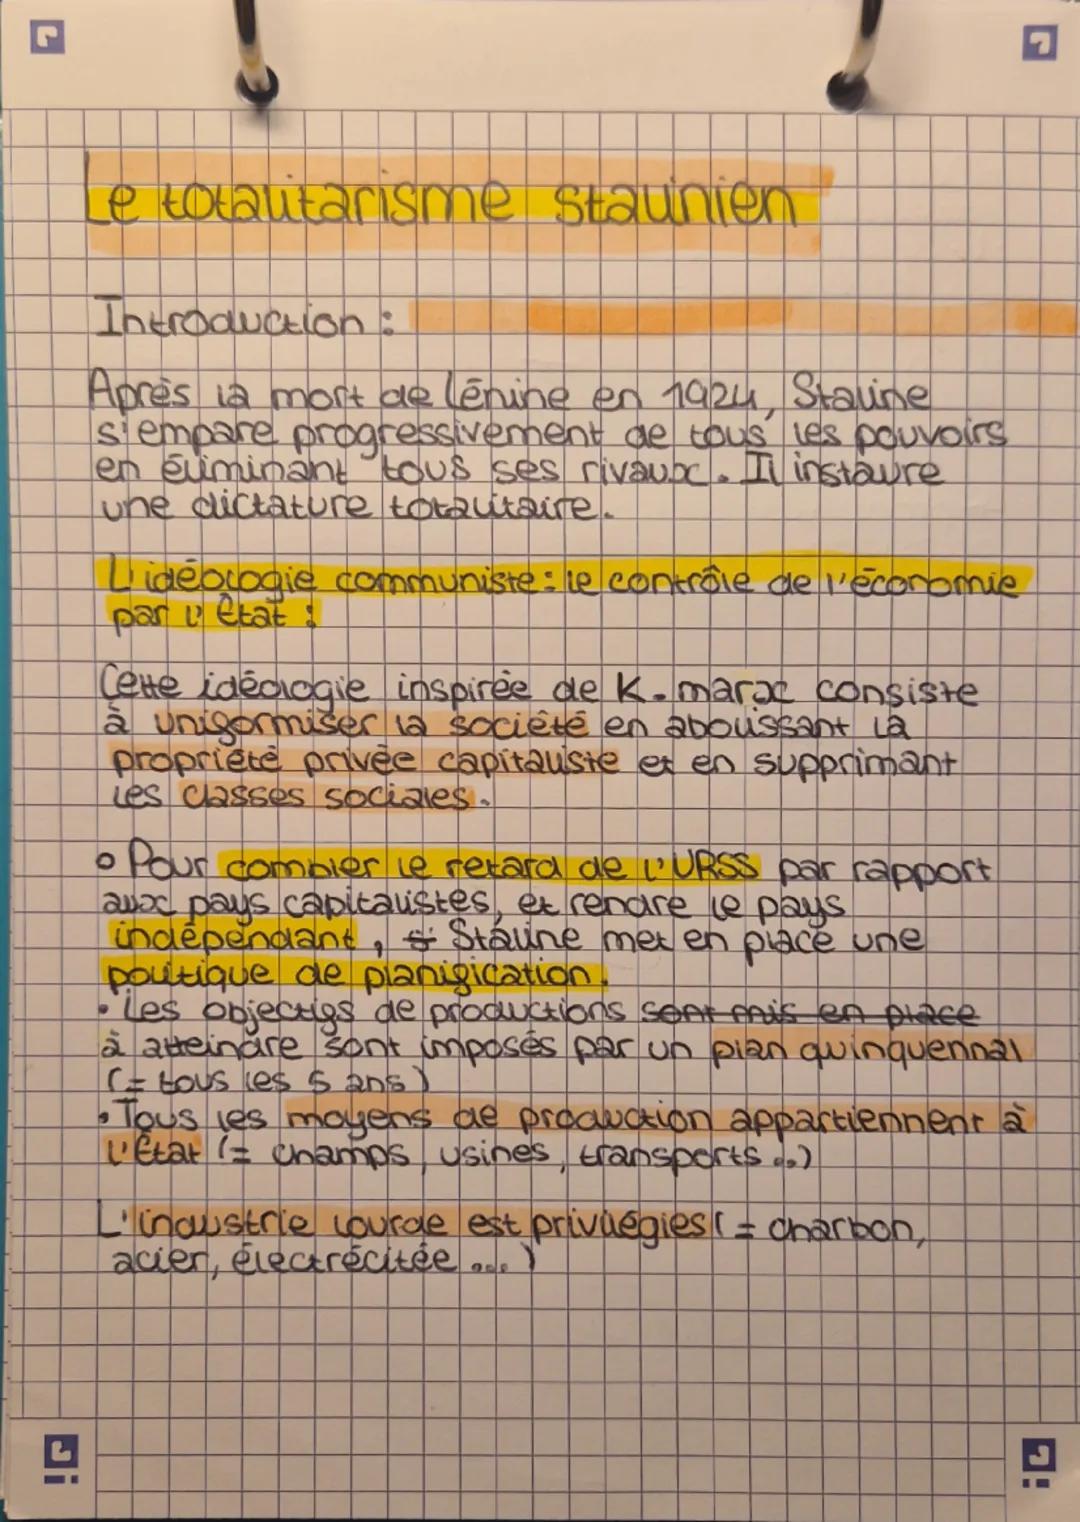 Le totalitarisme stalinien
Introduction :
Après la mort de Lénine en 1924, Staline
s'empare progressivement de tous les pouvoirs
en éliminant tous ses rivaux. Il instaure
une dictature totalitaire.
L'idéologie communiste : le contrôle de l'économie
par l'État :
Cette idéologie inspirée de K. marx consiste
à uniformiser la société en abolissant la
propriété privée capitaliste et en supprimant
les classes sociales.
° Pour combler le retard de l'URSS par rapport
aux pays capitalistes, et rendre le pays
indépendant, Staline met en place une
politique de planification.
• Les objectifs de productions sont mis en place
à atteindre sont imposés par un plan quinquennal
(= tous les 5 ans)
• Tous les moyens de production appartiennent à
l'État (= champs, usines, transports...)
L'industrie lourde est privilégies (= charbon,
acier, électrécitée ....)